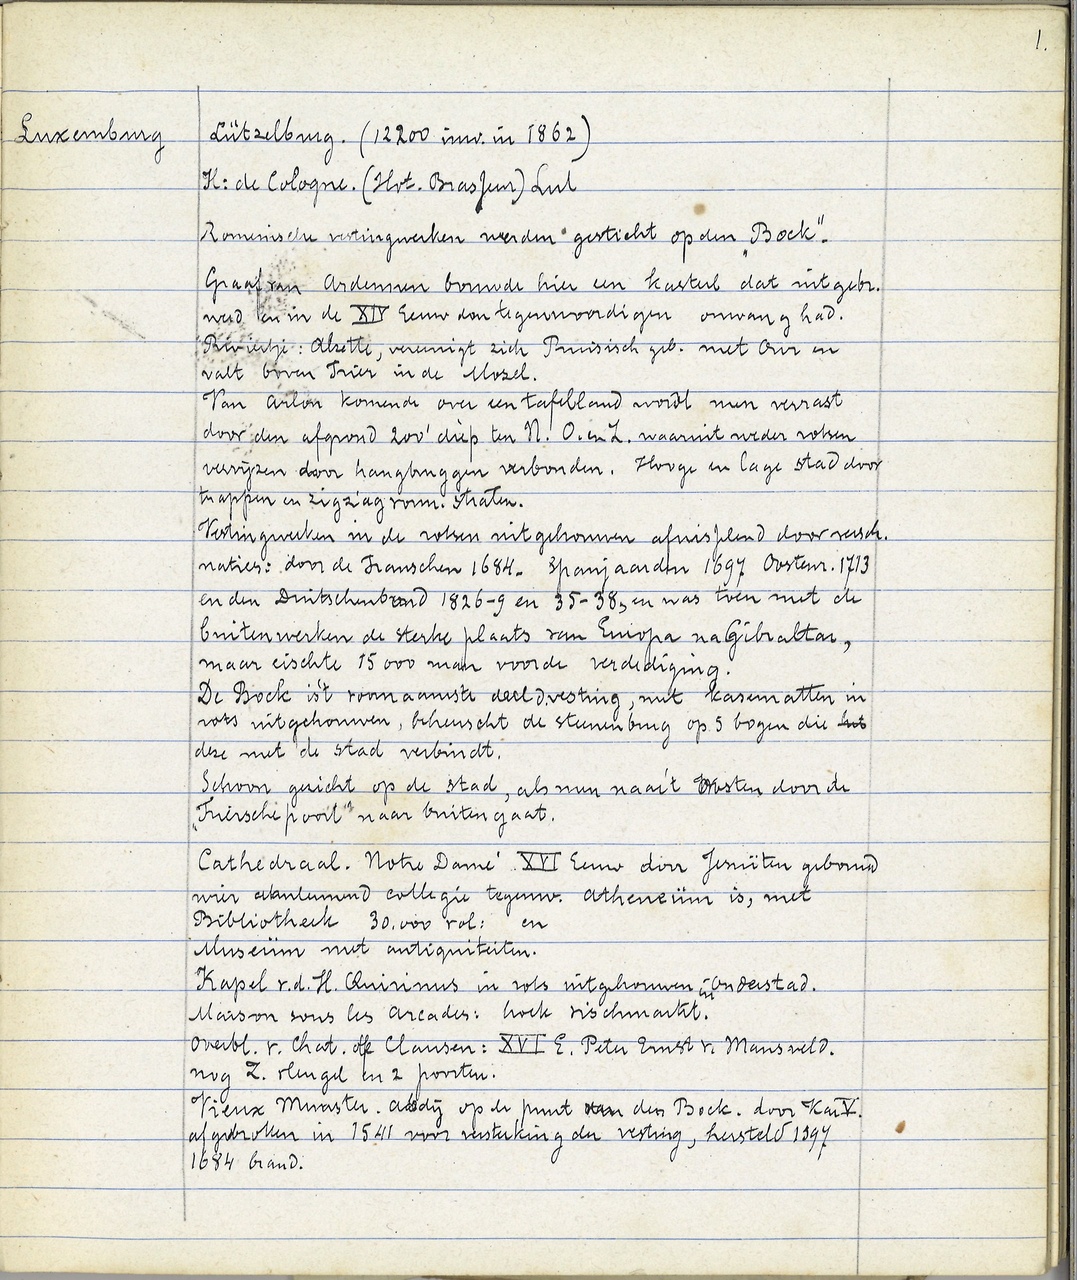 1.
Luxemburg
Lützelburg. (12200 inw. in 1862)
H: de Cologne. (Hot. Brasseur)
Romeinsche vestingwerken werden gesticht op den "Bock".
Graaf van Ardennen bouwde hier een kasteel dat uitgebr.
werd en in de XIV Eeuw den tegenwoordigen omvang had.
Riviertje: Alzette, vereenigt zich Pruisisch geb. met Our en
valt boven Trier in de Mozel.
Van Arlon komende over een tafelland wordt men verrast
door den afgrond 200' diep ten N. O. en Z. waaruit weder rotsen
verrijzen door hangbruggen verbonden. Hooge en lage stad door
trappen en zigzagvorm. straten.
Vestingwerken in de rotsen uitgehouwen afwisselend door versch.
naties: door de Franschen 1684. Spanjaarden 1697 Oostenr. 1713
en den Duitschenbond 1826-9 en 35-38, en was toen met de
buitenwerken de sterke plaats van Europa na Gibraltar,
maar eischte 15000 man voor de verdediging.
De Bock is't voornaamste deel d. vesting, met kasematten in
rots uitgehouwen, beheerscht de steenenbrug op 5 bogen die
deze met de stad verbindt.
Schoon gezicht op de stad, als men naar't Oosten door de
"Triersche poort" naar buiten gaat.
Cathedraal. Notre Dame' XVI Eeuw door Jesuïten gebouwd
wier collegie tegenw. Atheneüm is, met
Bibliotheek 30.000 vol: en
Museüm met antiquiteiten.
Kapel v. d. H. Quirinus in rots uitgehouwen in Onderstad.
Maison sous les Arcades: hoek vischmarkt.
Overbl. v. Chat. de Clausen: XVI E. Peter Ernst v. Mansveld.
nog Z. vleugel en 2 poorten.
Vieux Munster. abdij op de punt van den Bock. door Kar V.
afgebroken in 1541 voor versterking der vesting, hersteld 1597
1684 brand.